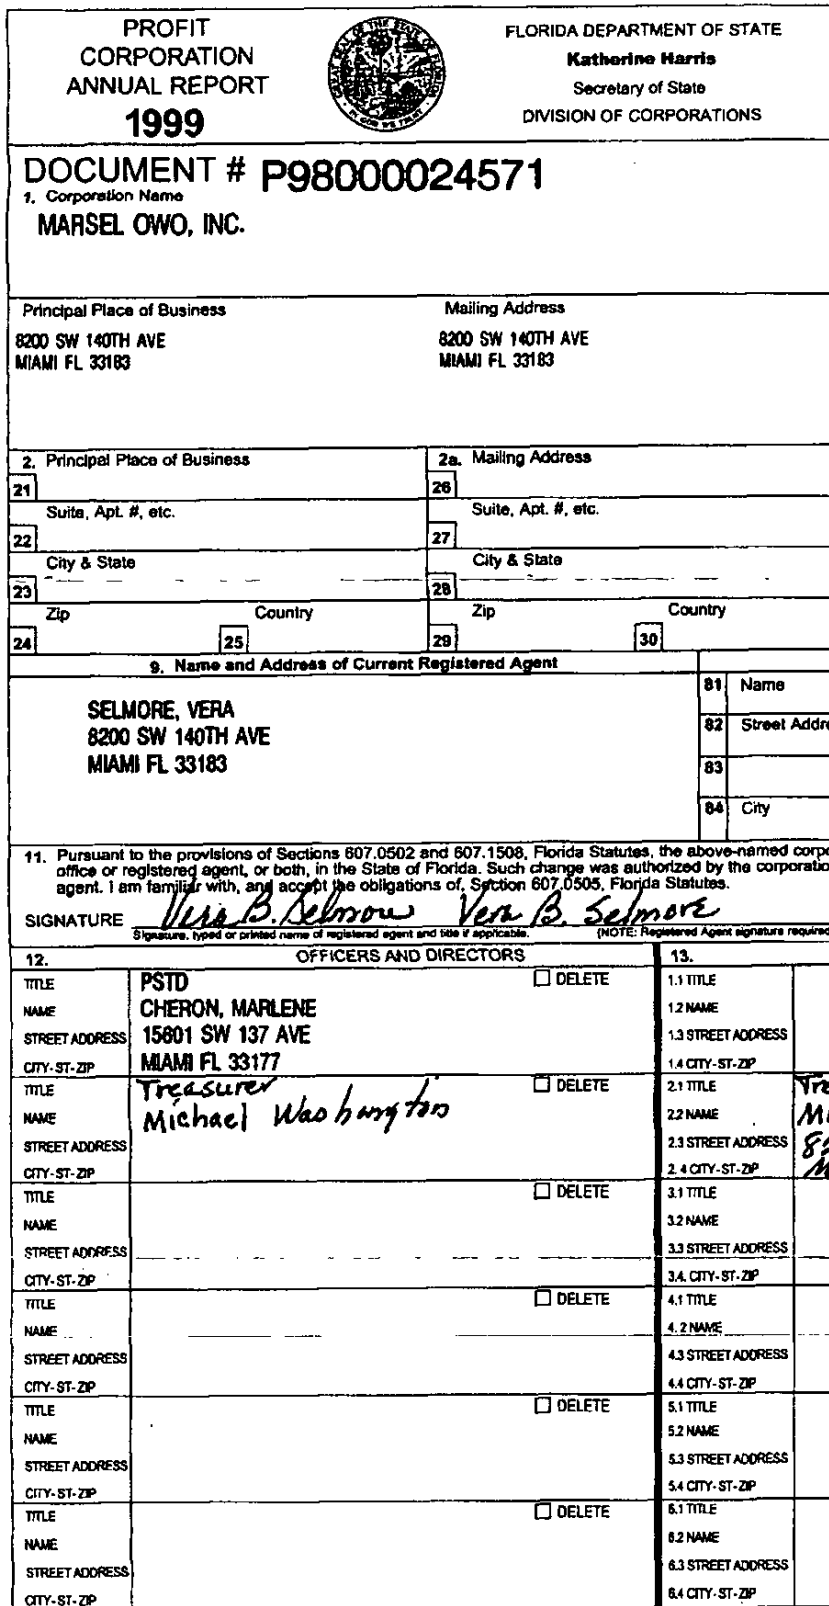 PROFIT
CORPORATION
ANNUAL REPORT
1999
FLORIDA DEPARTMENT OF STATE
Katherine Harris
Secretary of State
DIVISION OF CORPORATIONS
DOCUMENT # P98000024571
1. Corporation Name
MARSEL OWO, INC.
Principal Place of Business
8200 SW 140TH AVE
MIAMI FL 33183
Mailing Address
8200 SW 140TH AVE
MIAMI FL 33183
2. Principal Place of Business
21
2a. Mailing Address
26
Suite, Apt. #, etc.
22
Suite, Apt. #, etc.
27
City & State
23
City & State
28
Zip
24
Country
25
Zip
29
Country
30
9. Name and Address of Current Registered Agent
SELMORE, VERA
8200 SW 140TH AVE
MIAMI FL 33183
81 Name
82 Street Addre
83
84 City
11. Pursuant to the provisions of Sections 607.0502 and 607.1508, Florida Statutes, the above-named corpo
office or registered agent, or both, in the State of Florida. Such change was authorized by the corporatio
agent. I am familiar with, and accept the obligations of, Section 607.0505, Florida Statutes.
SIGNATURE Vera B. Selmore Vera B. Selmore
Signature, typed or printed name of registered agent and title if applicable. (NOTE: Registered Agent signature required
12. OFFICERS AND DIRECTORS
13.
TITLE PSTD DELETE
NAME CHERON, MARLENE
STREET ADDRESS 15601 SW 137 AVE
CITY-ST-ZIP MIAMI FL 33177
1.1 TITLE
1.2 NAME
1.3 STREET ADDRESS
1.4 CITY-ST-ZIP
TITLE Treasurer DELETE
NAME Michael Washington
STREET ADDRESS
CITY-ST-ZIP
2.1 TITLE Tre
2.2 NAME Mi
2.3 STREET ADDRESS 82
2.4 CITY-ST-ZIP M
TITLE DELETE
NAME
STREET ADDRESS
CITY-ST-ZIP
3.1 TITLE
3.2 NAME
3.3 STREET ADDRESS
3.4. CITY-ST-ZIP
TITLE DELETE
NAME
STREET ADDRESS
CITY-ST-ZIP
4.1 TITLE
4.2 NAME
4.3 STREET ADDRESS
4.4 CITY-ST-ZIP
TITLE DELETE
NAME
STREET ADDRESS
CITY-ST-ZIP
5.1 TITLE
5.2 NAME
5.3 STREET ADDRESS
5.4 CITY-ST-ZIP
TITLE DELETE
NAME
STREET ADDRESS
CITY-ST-ZIP
6.1 TITLE
6.2 NAME
6.3 STREET ADDRESS
6.4 CITY-ST-ZIP